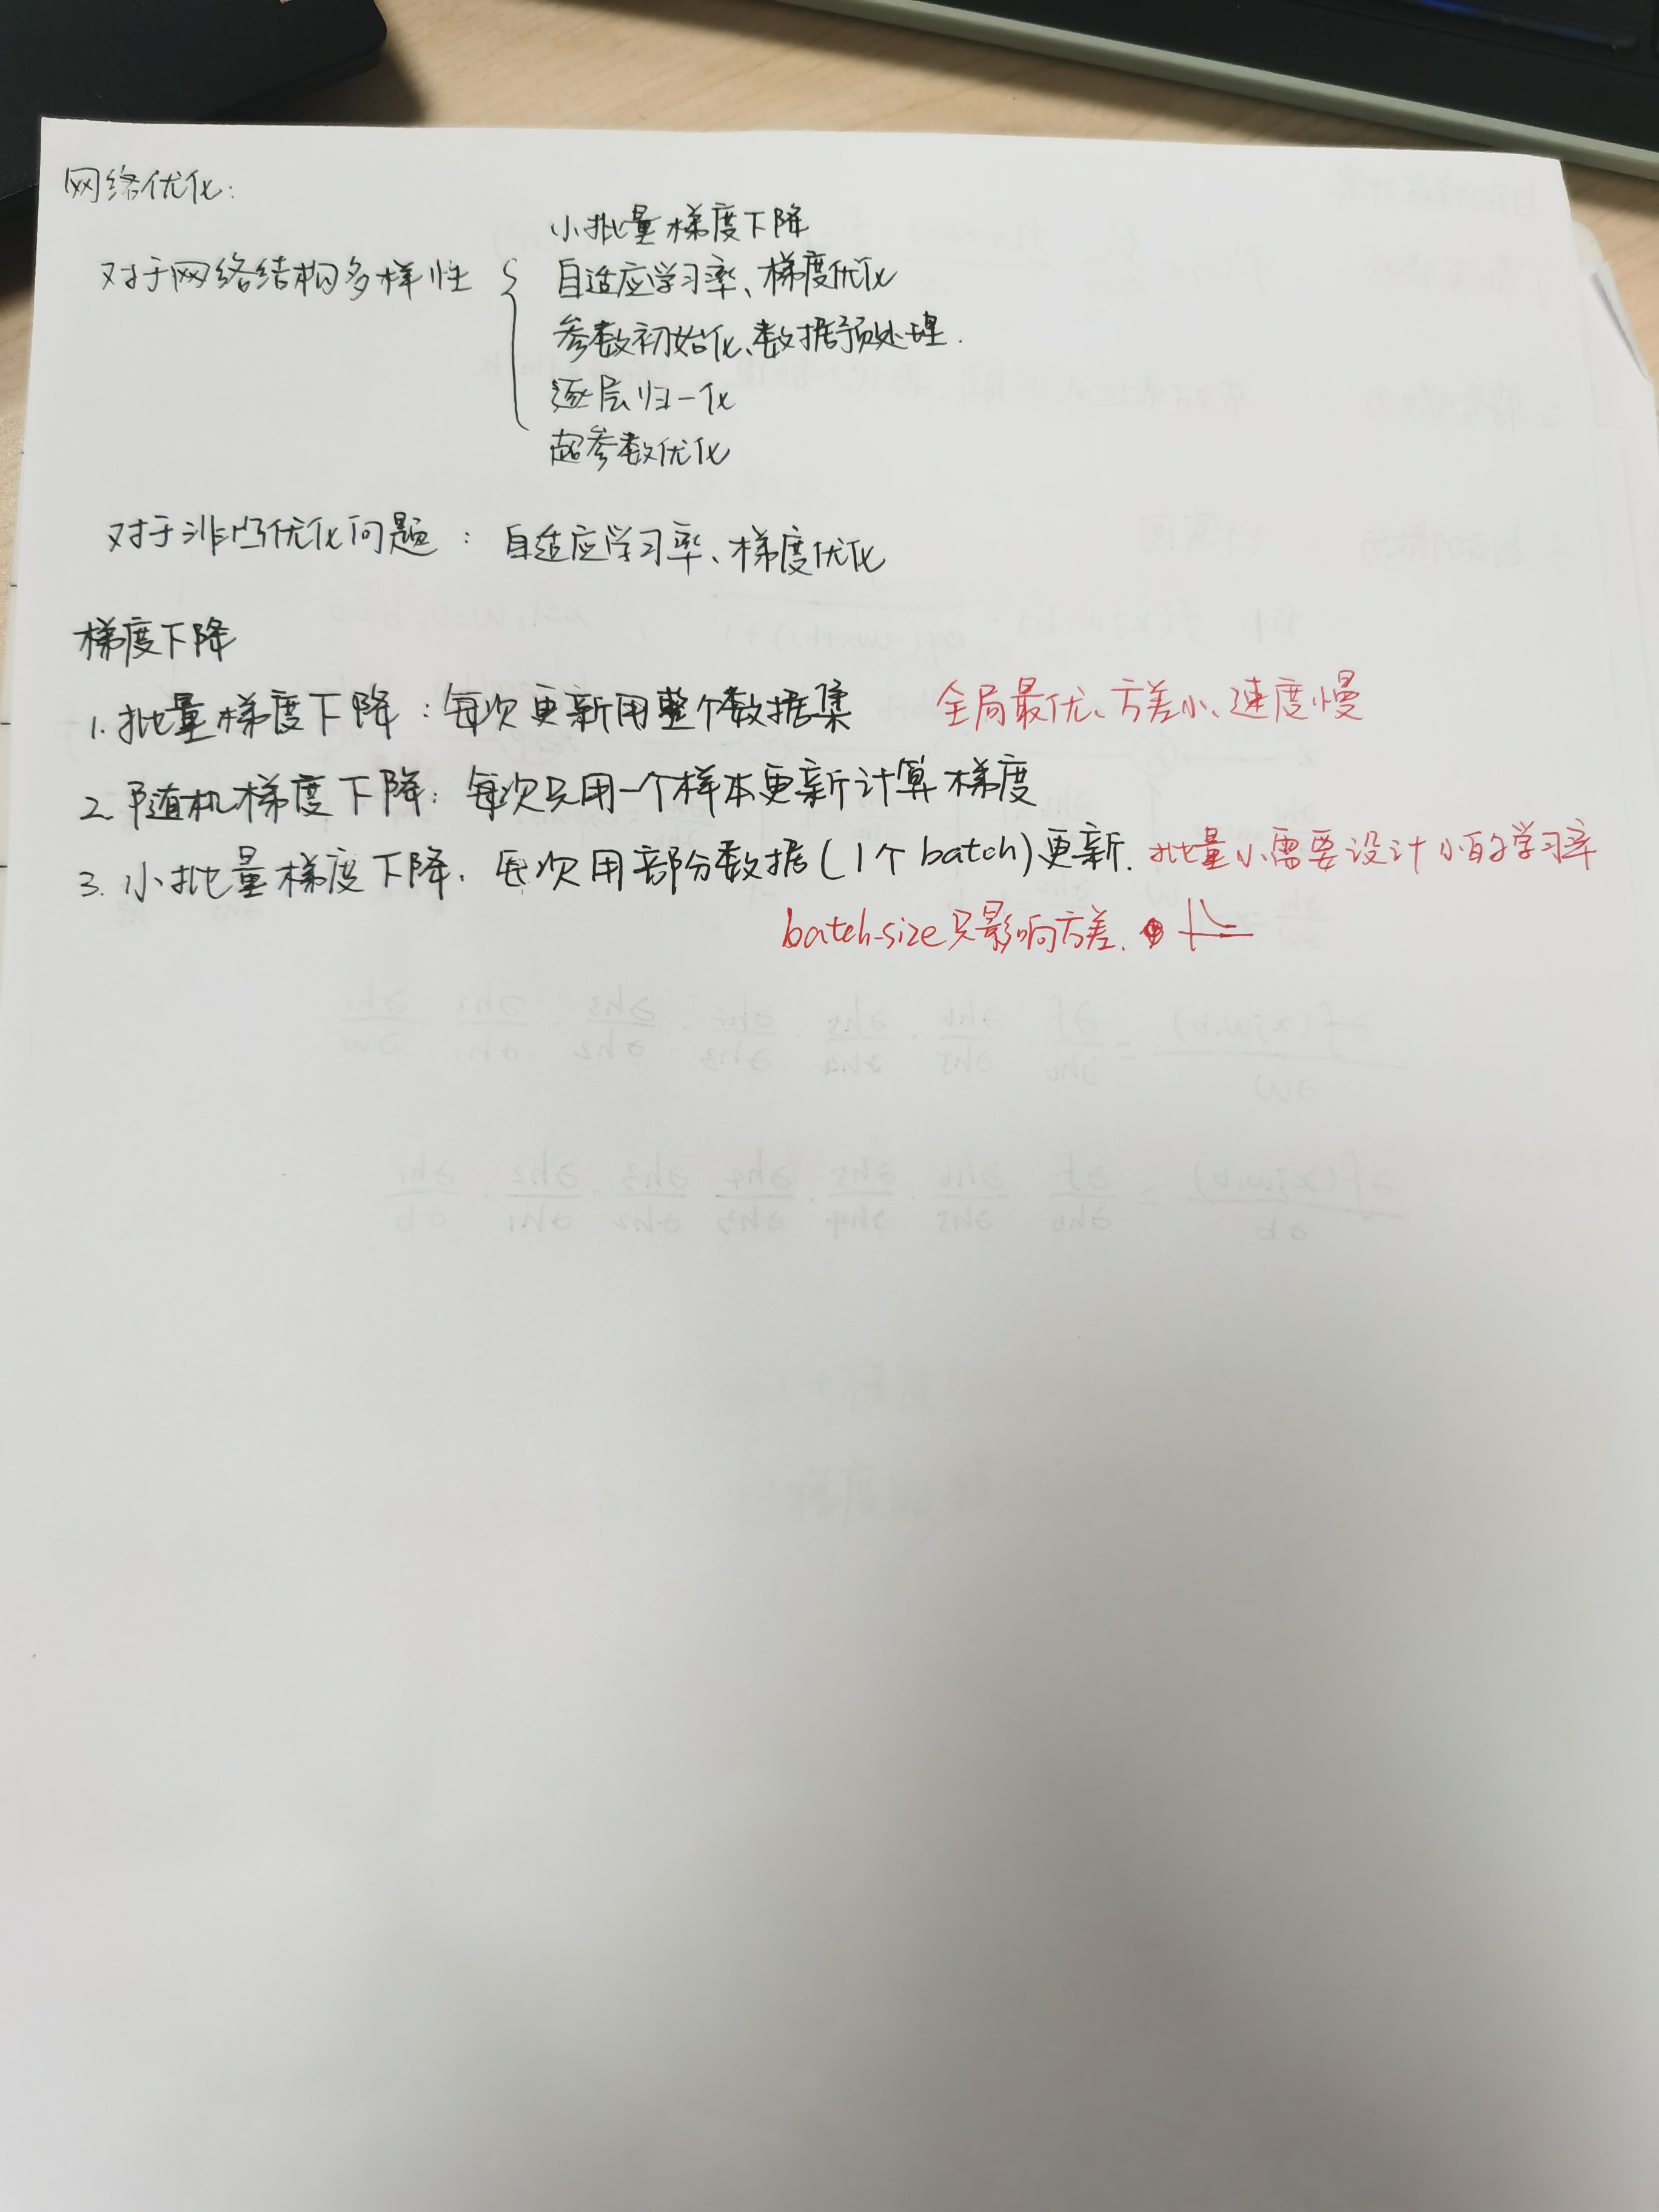 网络优化:
小批量梯度下降
对于网络结构多样性 { 自适应学习率、梯度优化
参数初始化、数据预处理.
逐层归一化
超参数优化
对于非凸优化问题: 自适应学习率、梯度优化
梯度下降
1. 批量梯度下降:每次更新用整个数据集 全局最优、方差小、速度慢
2. 随机梯度下降:每次只用一个样本更新计算梯度
3. 小批量梯度下降. 每次用部分数据(1个batch)更新. 批量小需要设计小的学习率
batch-size只影响方差.